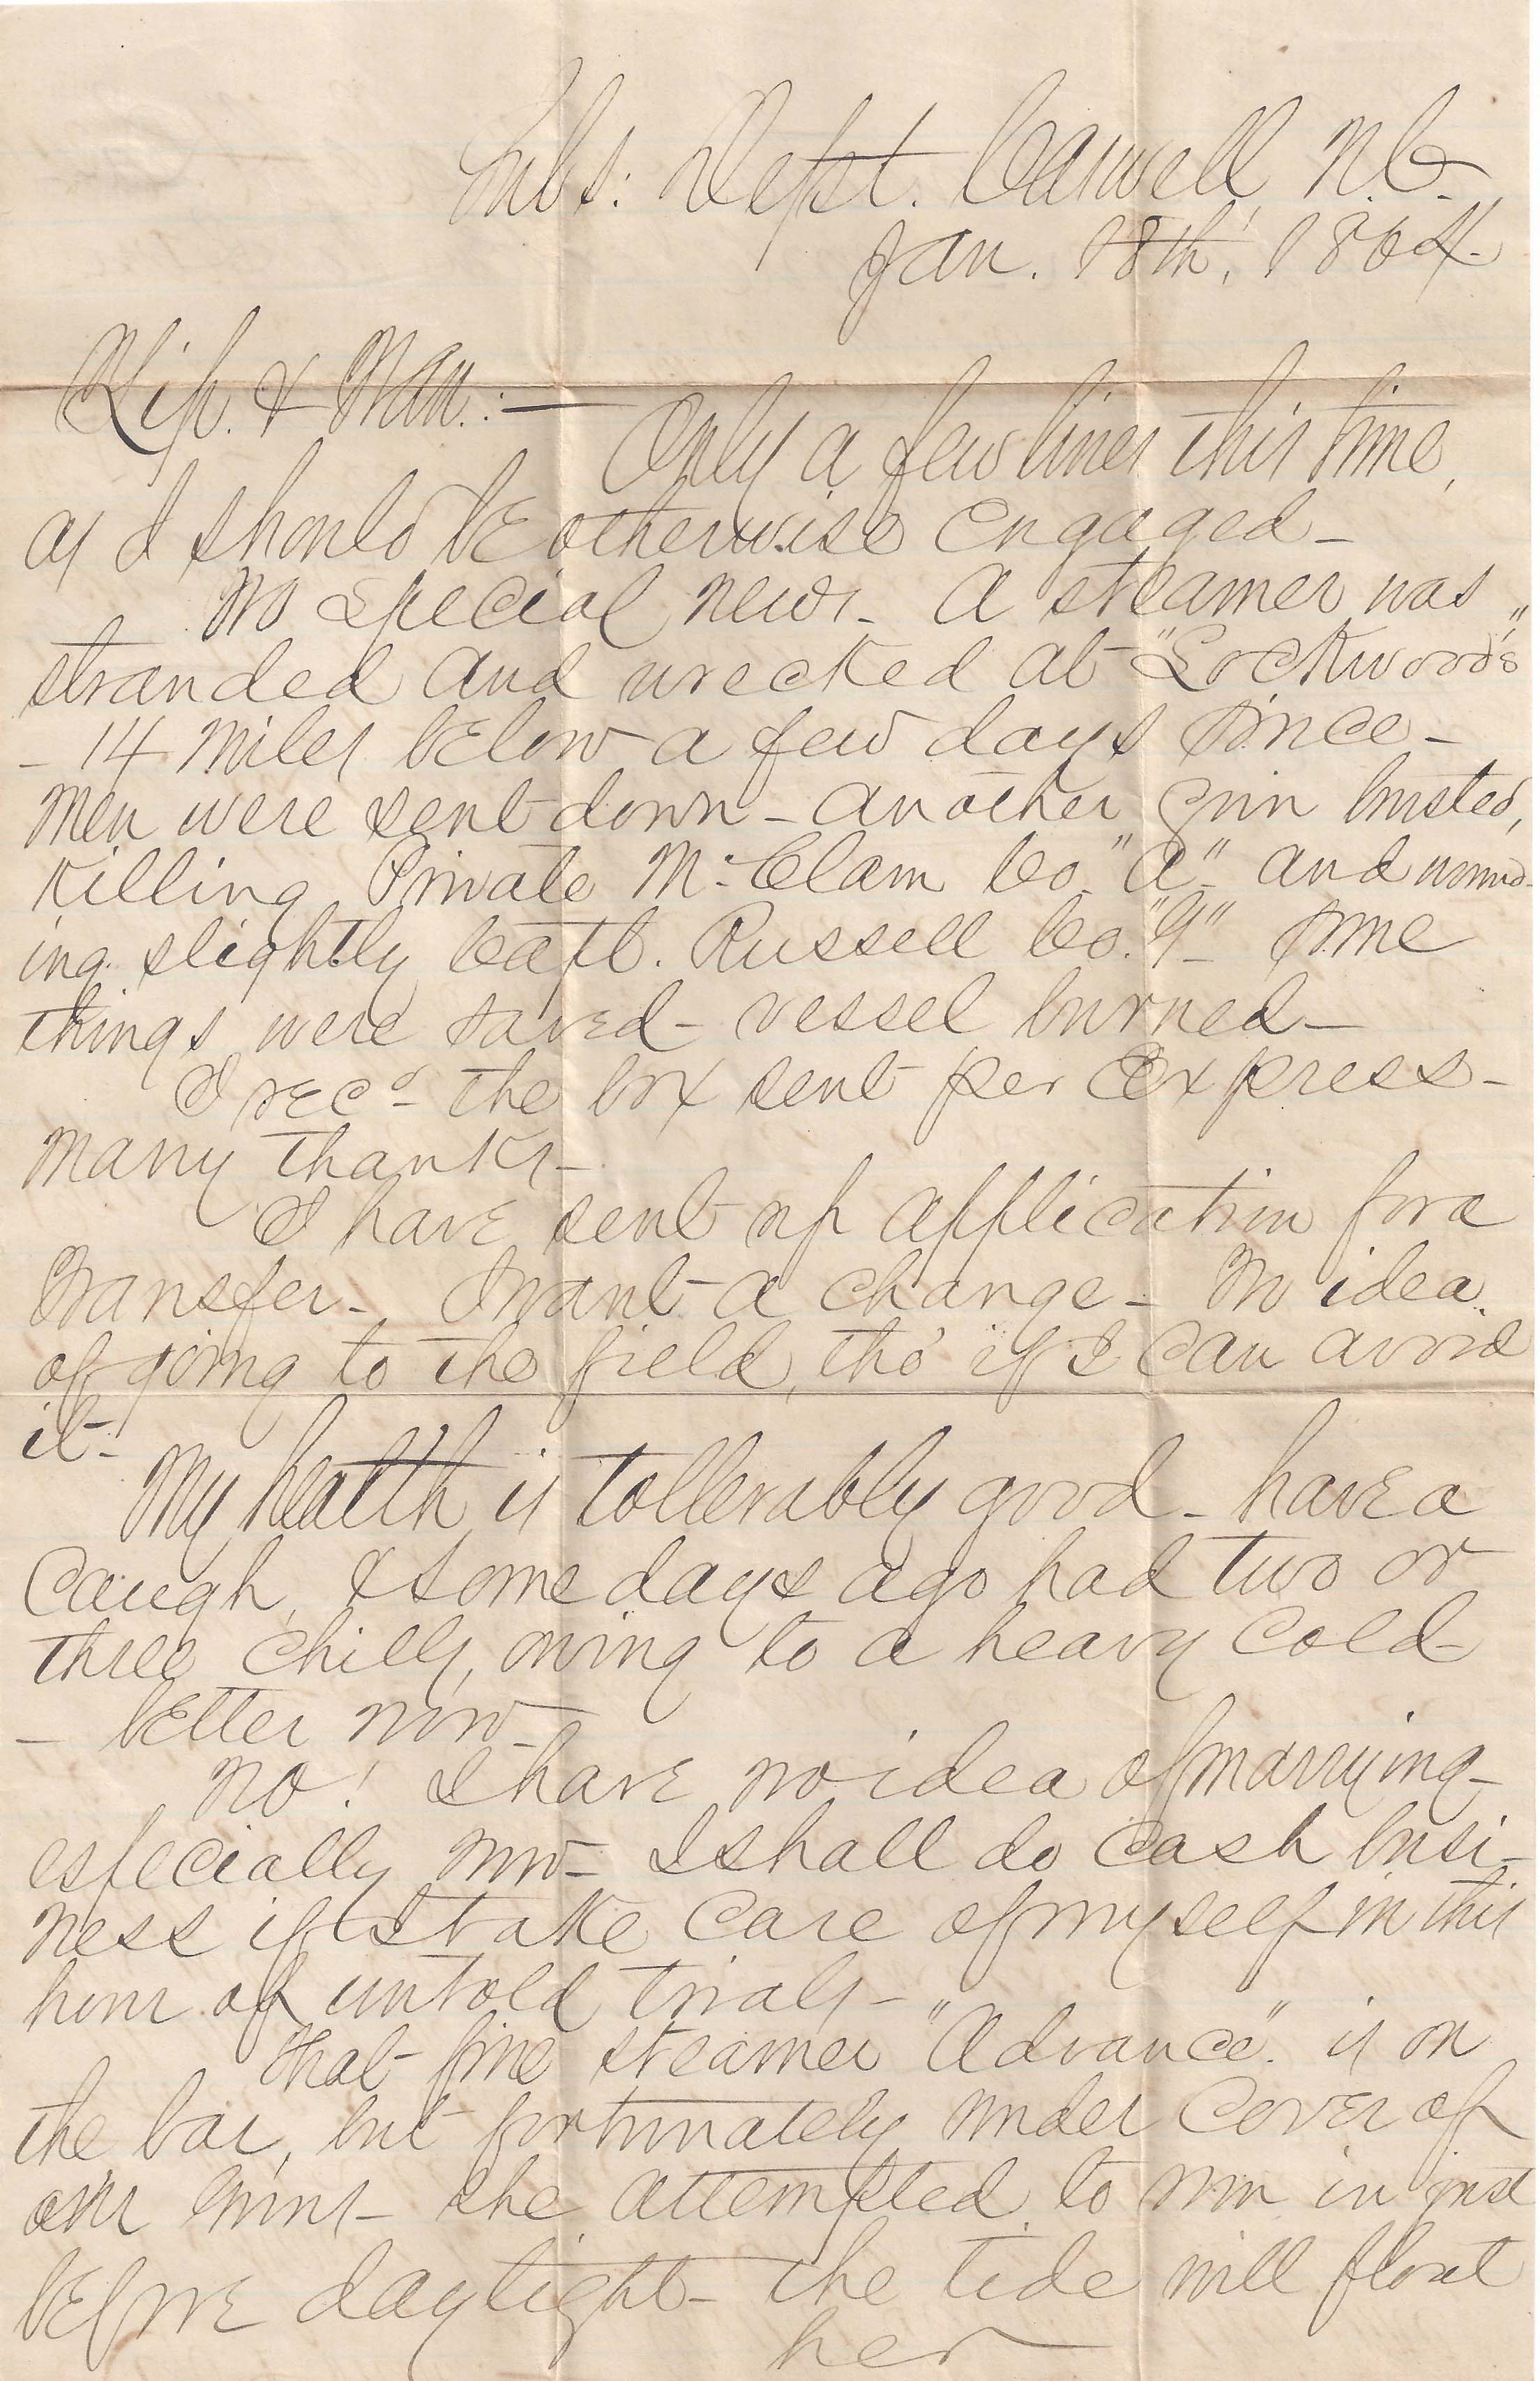 Subs: Dept. Caswell, N.C.
Jan. 18th, 1864.
Kip. & Mau.:—
Only a few lines this time,
as I should be otherwise engaged—
No special news— A steamer was
stranded and wrecked at "Lockwood's"
— 14 miles below a few days since—
Men were sent down— another gun bursted,
killing Private McClam Co. "A"— and wound-
ing slightly Capt. Russell Co. "I"— Some
things were saved— vessel burned—
I recd— the box sent per Express—
many thanks—
I have sent up application for a
transfer— I want a change— No idea
of going to the field, tho' if I can avoid
it—
My health is tollerably good— have a
Caugh, & some days ago had two or
three chills, owing to a heavy cold—
— better now—
No! I have no idea of marrying—
especially now— I shall do cash busi-
ness if I take care of myself in this
hour of untold trials—
That fine steamer "Advance" is on
the bar, but fortunately under cover of
our guns— she attempted to run in just
before daylight— the tide will float
her—